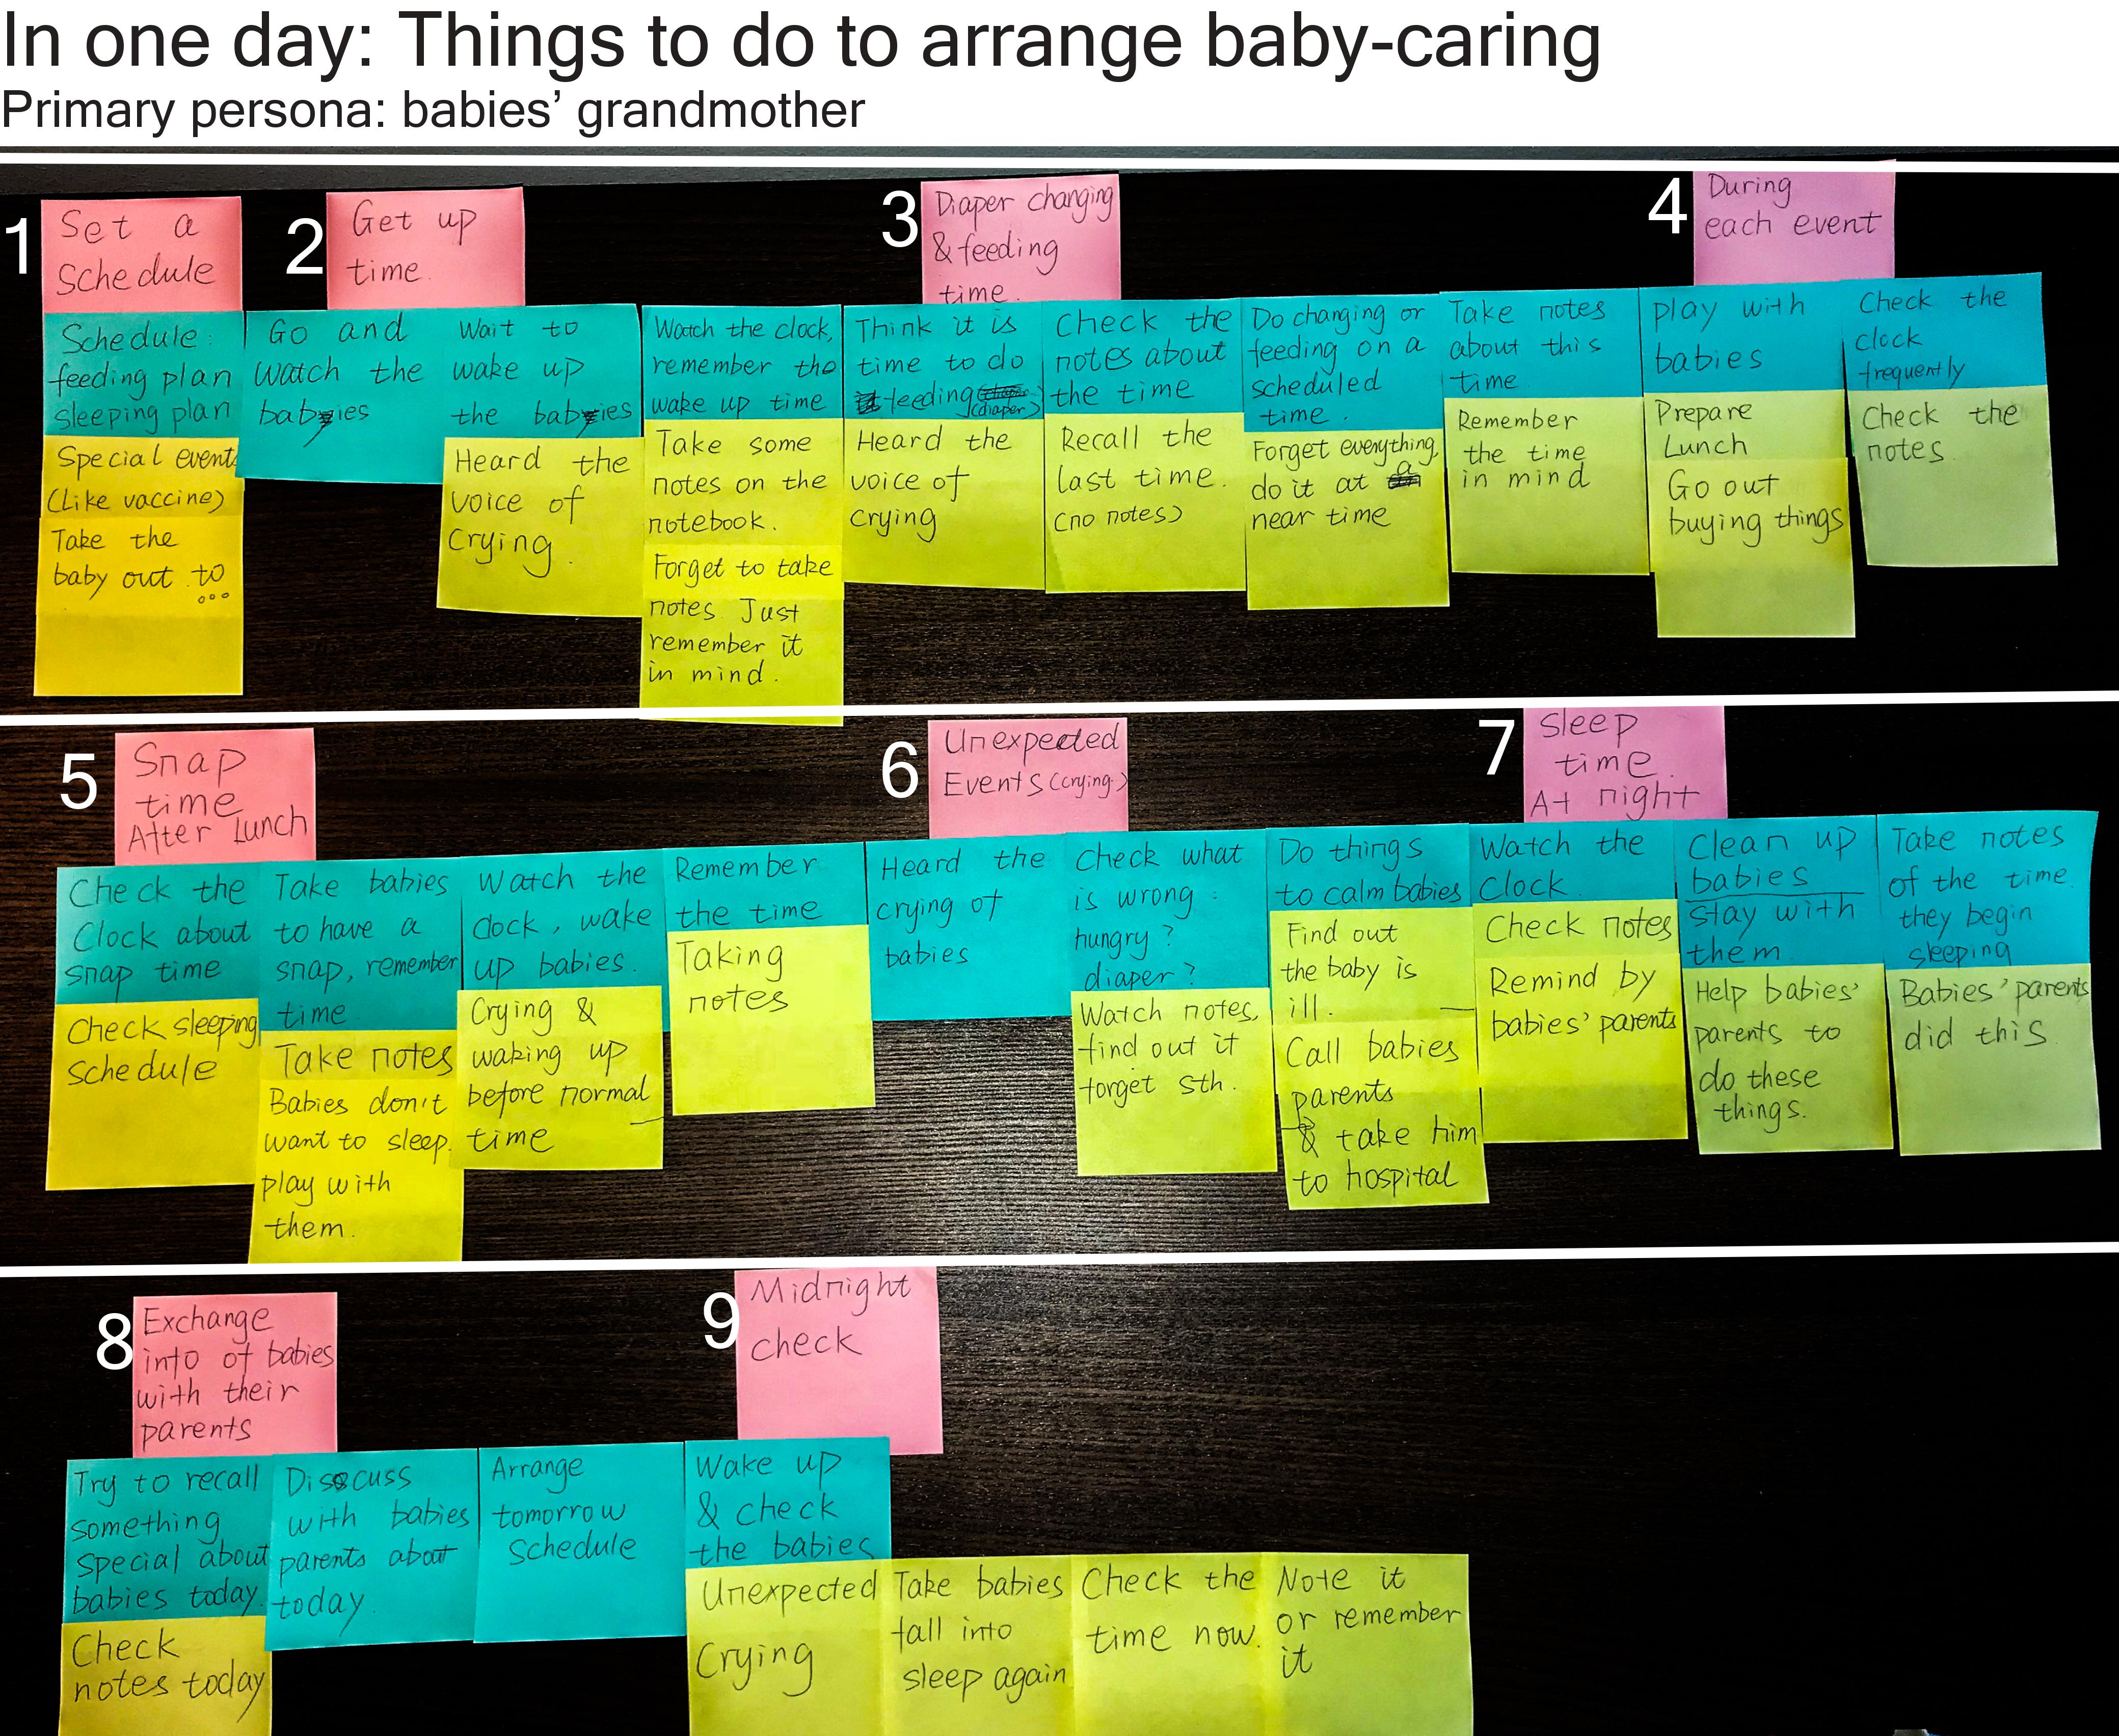 In one day: Things to do to arrange baby-caring
Primary persona: babies’ grandmother
1
Set a
Schedule
Schedule:
feeding plan
sleeping plan
Special event
(Like vaccine)
Take the
baby out to
...
2
Get up
time.
Go and
watch the
babies
Wait to
wake up
the babies
Heard the
voice of
crying.
Watch the clock,
remember the
wake up time
Take some
notes on the
notebook.
Forget to take
notes. Just
remember it
in mind.
3
Diaper changing
& feeding
time.
Think it is
time to do
feeding
(diaper)
Heard the
voice of
crying
Check the
notes about
the time
Recall the
last time.
(no notes)
Do changing or
feeding on a
scheduled
time.
Forget everything,
do it at a
near time
Take notes
about this
time.
Remember
the time
in mind
4
During
each event
play with
babies
Prepare
Lunch
Go out
buying things
Check the
clock
frequently
Check the
notes.
5
Snap
time
After Lunch
Check the
Clock about
snap time
Check sleeping
Schedule
Take babies
to have a
snap, remember
time.
Take notes
Babies don't
want to sleep.
play with
them.
Watch the
clock, wake
up babies.
Crying &
waking up
before normal
time
Remember
the time
Taking
notes
6
Unexpected
Events (crying)
Heard the
crying of
babies
Check what
is wrong:
hungry?
diaper?
Watch notes,
find out it
forget sth.
Do things
to calm babies
Find out
the baby is
ill.
Call babies
parents
& take him
to hospital
7
Sleep
time.
At night
Watch the
Clock.
Check notes
Remind by
babies' parents
Clean up
babies
stay with
them.
Help babies'
parents to
do these
things.
Take notes
of the time.
they begin
sleeping
Babies' parents
did this.
8
Exchange
info of babies
with their
parents
Try to recall
something
special about
babies today.
Check
notes today
Discuss
with babies
parents about
today.
Arrange
tomorrow
Schedule
9
Midnight
check
Wake up
& check
the babies
Unexpected
Crying
Take babies
fall into
sleep again
Check the
time now.
Note it
or remember
it